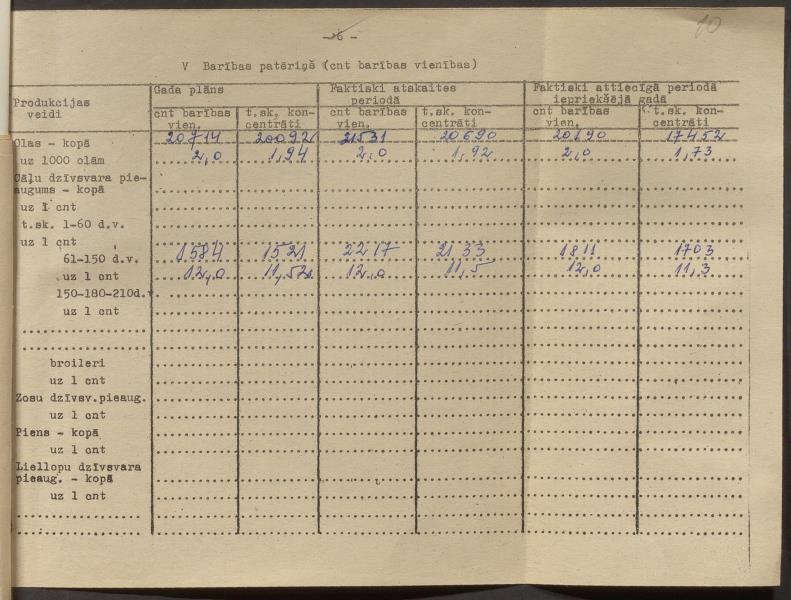 10
- 6 -
V Barības patēriņš (cnt barības vienības)
Produkcijas veidi | Gada plāns | Faktiski atskaites periodā | Faktiski attiecīgā periodā iepriekšējā gadā
cnt barības vien. | t.sk. koncentrāti | cnt barības vien. | t.sk. koncentrāti | cnt barības vien. | t.sk. koncentrāti
Olas - kopā 20714 20092 21531 20690 20190 17452
uz 1000 olām 2,0 1,94 2,0 1,92 2,0 1,73
Cāļu dzīvsvara pie-
augums - kopā
uz 1 cnt
t.sk. 1-60 d.v.
uz 1 cnt
61-150 d.v. 1584 1521 2217 2133 1811 1703
uz 1 cnt 12,0 11,52 12,0 11,5 12,0 11,3
150-180-210d.v.
uz 1 cnt
broileri
uz 1 cnt
Zosu dzīvsv.pieaug.
uz 1 cnt
Piens - kopā
uz 1 cnt
Liellopu dzīvsvara
pieaug. - kopā
uz 1 cnt